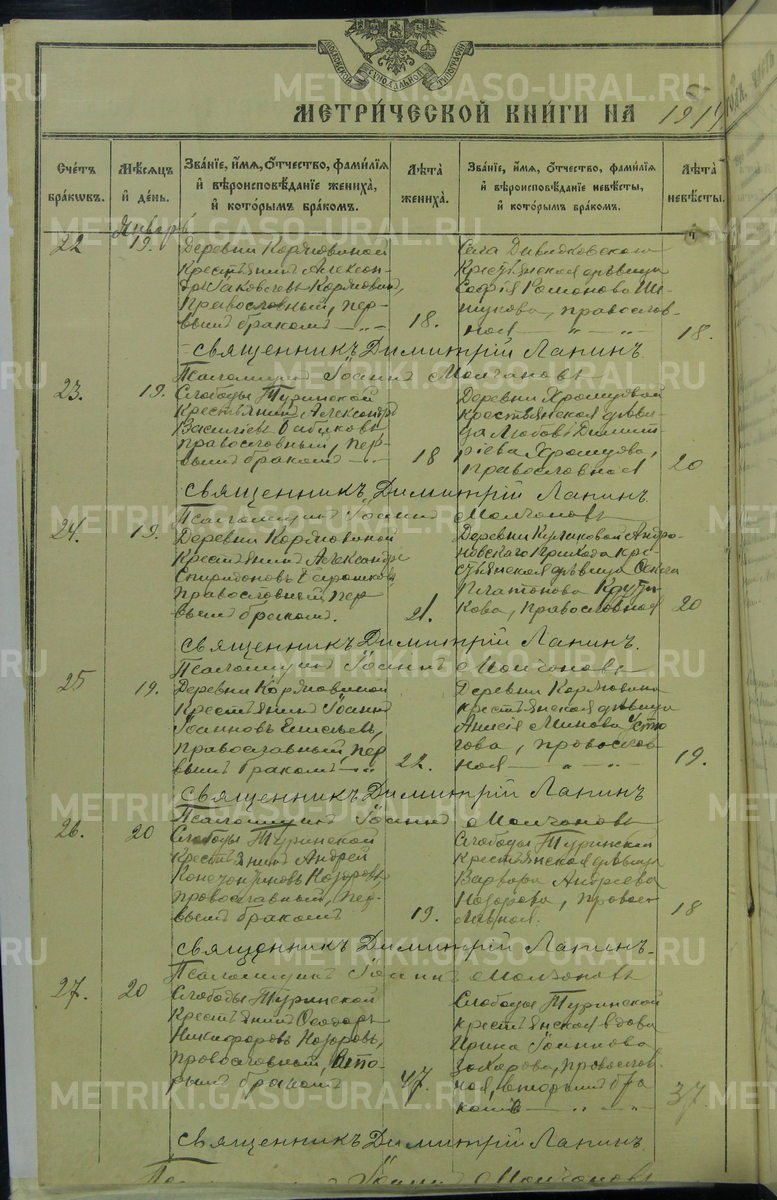 МОСКОВСКОЙ СѴНОДАЛЬНОЙ ТИПОГРАФІИ
МЕТРИ́ЧЕСКОЙ КНИ́ГИ НА 1919
Счетъ бра́кѡвъ.
Мѣсяцъ и҆ де́нь.
Зва́нїе, и҆́мя, ѻ҆́тчество, фами́лїя и҆ вѣроисповѣ́данїе жениха̀, и҆ кото́рымъ бра́комъ.
Лѣ́та жениха̀.
Зва́нїе, и҆́мя, ѻ҆́тчество, фами́лїя и҆ вѣроисповѣ́данїе невѣ́сты, и҆ кото́рымъ бра́комъ.
Лѣ́та невѣ́сты.
Январь
22 19. Деревни Коржавиной
Крестьянинъ Алексан-
дръ Яковлевъ Коржавинъ,
Православный, пер-
вымъ бракомъ 18.
Села Давидковскаго
Крестьянская дѣвица
Софія Романова
православ-
ная 18.
Священникъ Димитрій Лапинъ.
Псаломщикъ Іоаннъ Молчановъ
23. 19. Слободы Туринской
Крестьянинъ Александръ
Васильевъ Бабиковъ
православный, пер-
вымъ бракомъ 18
Деревни Храмцовой
Крестьянская дѣви-
ца Любовь Димит-
ріева Храмцова,
Православная 20
Священникъ Димитрій Лапинъ.
Псаломщикъ Іоаннъ Молчановъ
24. 19. Деревни Коржавиной
Крестьянинъ Александръ
Спиридоновъ
Православный, пер
вымъ бракомъ. 21.
Деревни Куликовой Андро-
новскаго Прихода кре-
стьянская дѣвица
Платонова
Православная 20
Священникъ Димитрій Лапинъ.
Псаломщикъ Іоаннъ Молчановъ
25 19. Деревни Коржавиной
Крестьянинъ Іоаннъ
Іоанновъ Елисѣевъ,
Православный, пер
вымъ бракомъ 22.
Деревни Коржавина
крестьянская дѣвица
Анисія Минова
православ-
ная 19.
Священникъ Димитрій Лапинъ
Псаломщикъ Іоаннъ Молчановъ
26. 20 Слободы Туринской
Крестьянинъ Андрей
Назаровъ,
православный, пер-
вымъ бракомъ 19.
Слободы Туринской
Крестьянская дѣвица
Варвара Андреева
Назарова, право-
славная. 18
Священникъ Димитрій Лапинъ.
Псаломщикъ Іоаннъ Молчановъ
27. 20 Слободы Туринской
Крестьянинъ Ѳеодоръ
Никифоровъ Назаровъ,
православный, вто-
рымъ бракомъ 47.
Слободы Туринской
крестьянская вдова
Ирина Іоаннова
Захарова, православ-
ная, вторымъ бра
комъ 37.
Священникъ Димитрій Лапинъ.
Іоаннъ Молчановъ
METRIKI.GASO-URAL.RU